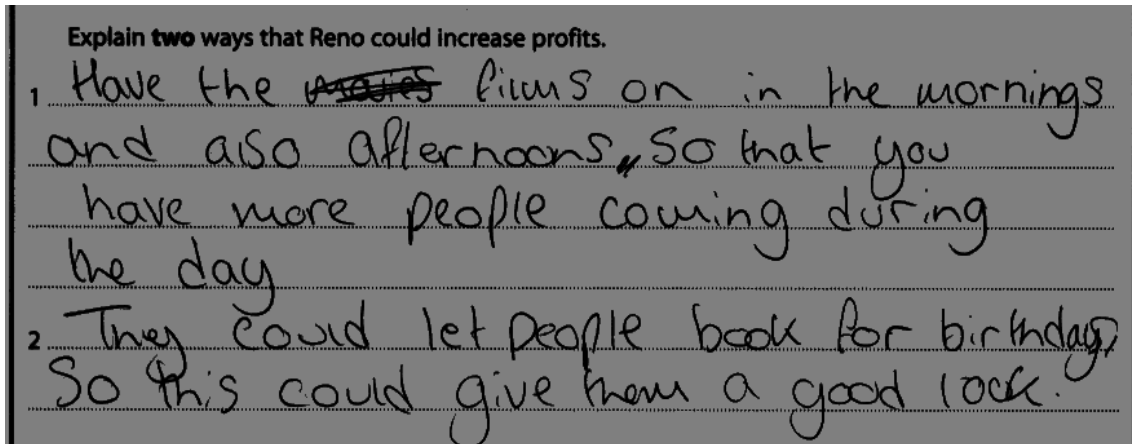 Explain two ways that Reno could increase profits.
1 Have the films on in the mornings
and also afternoons, so that you
have more people coming during
the day
2 They could let people book for birthdays,
So this could give them a good look.